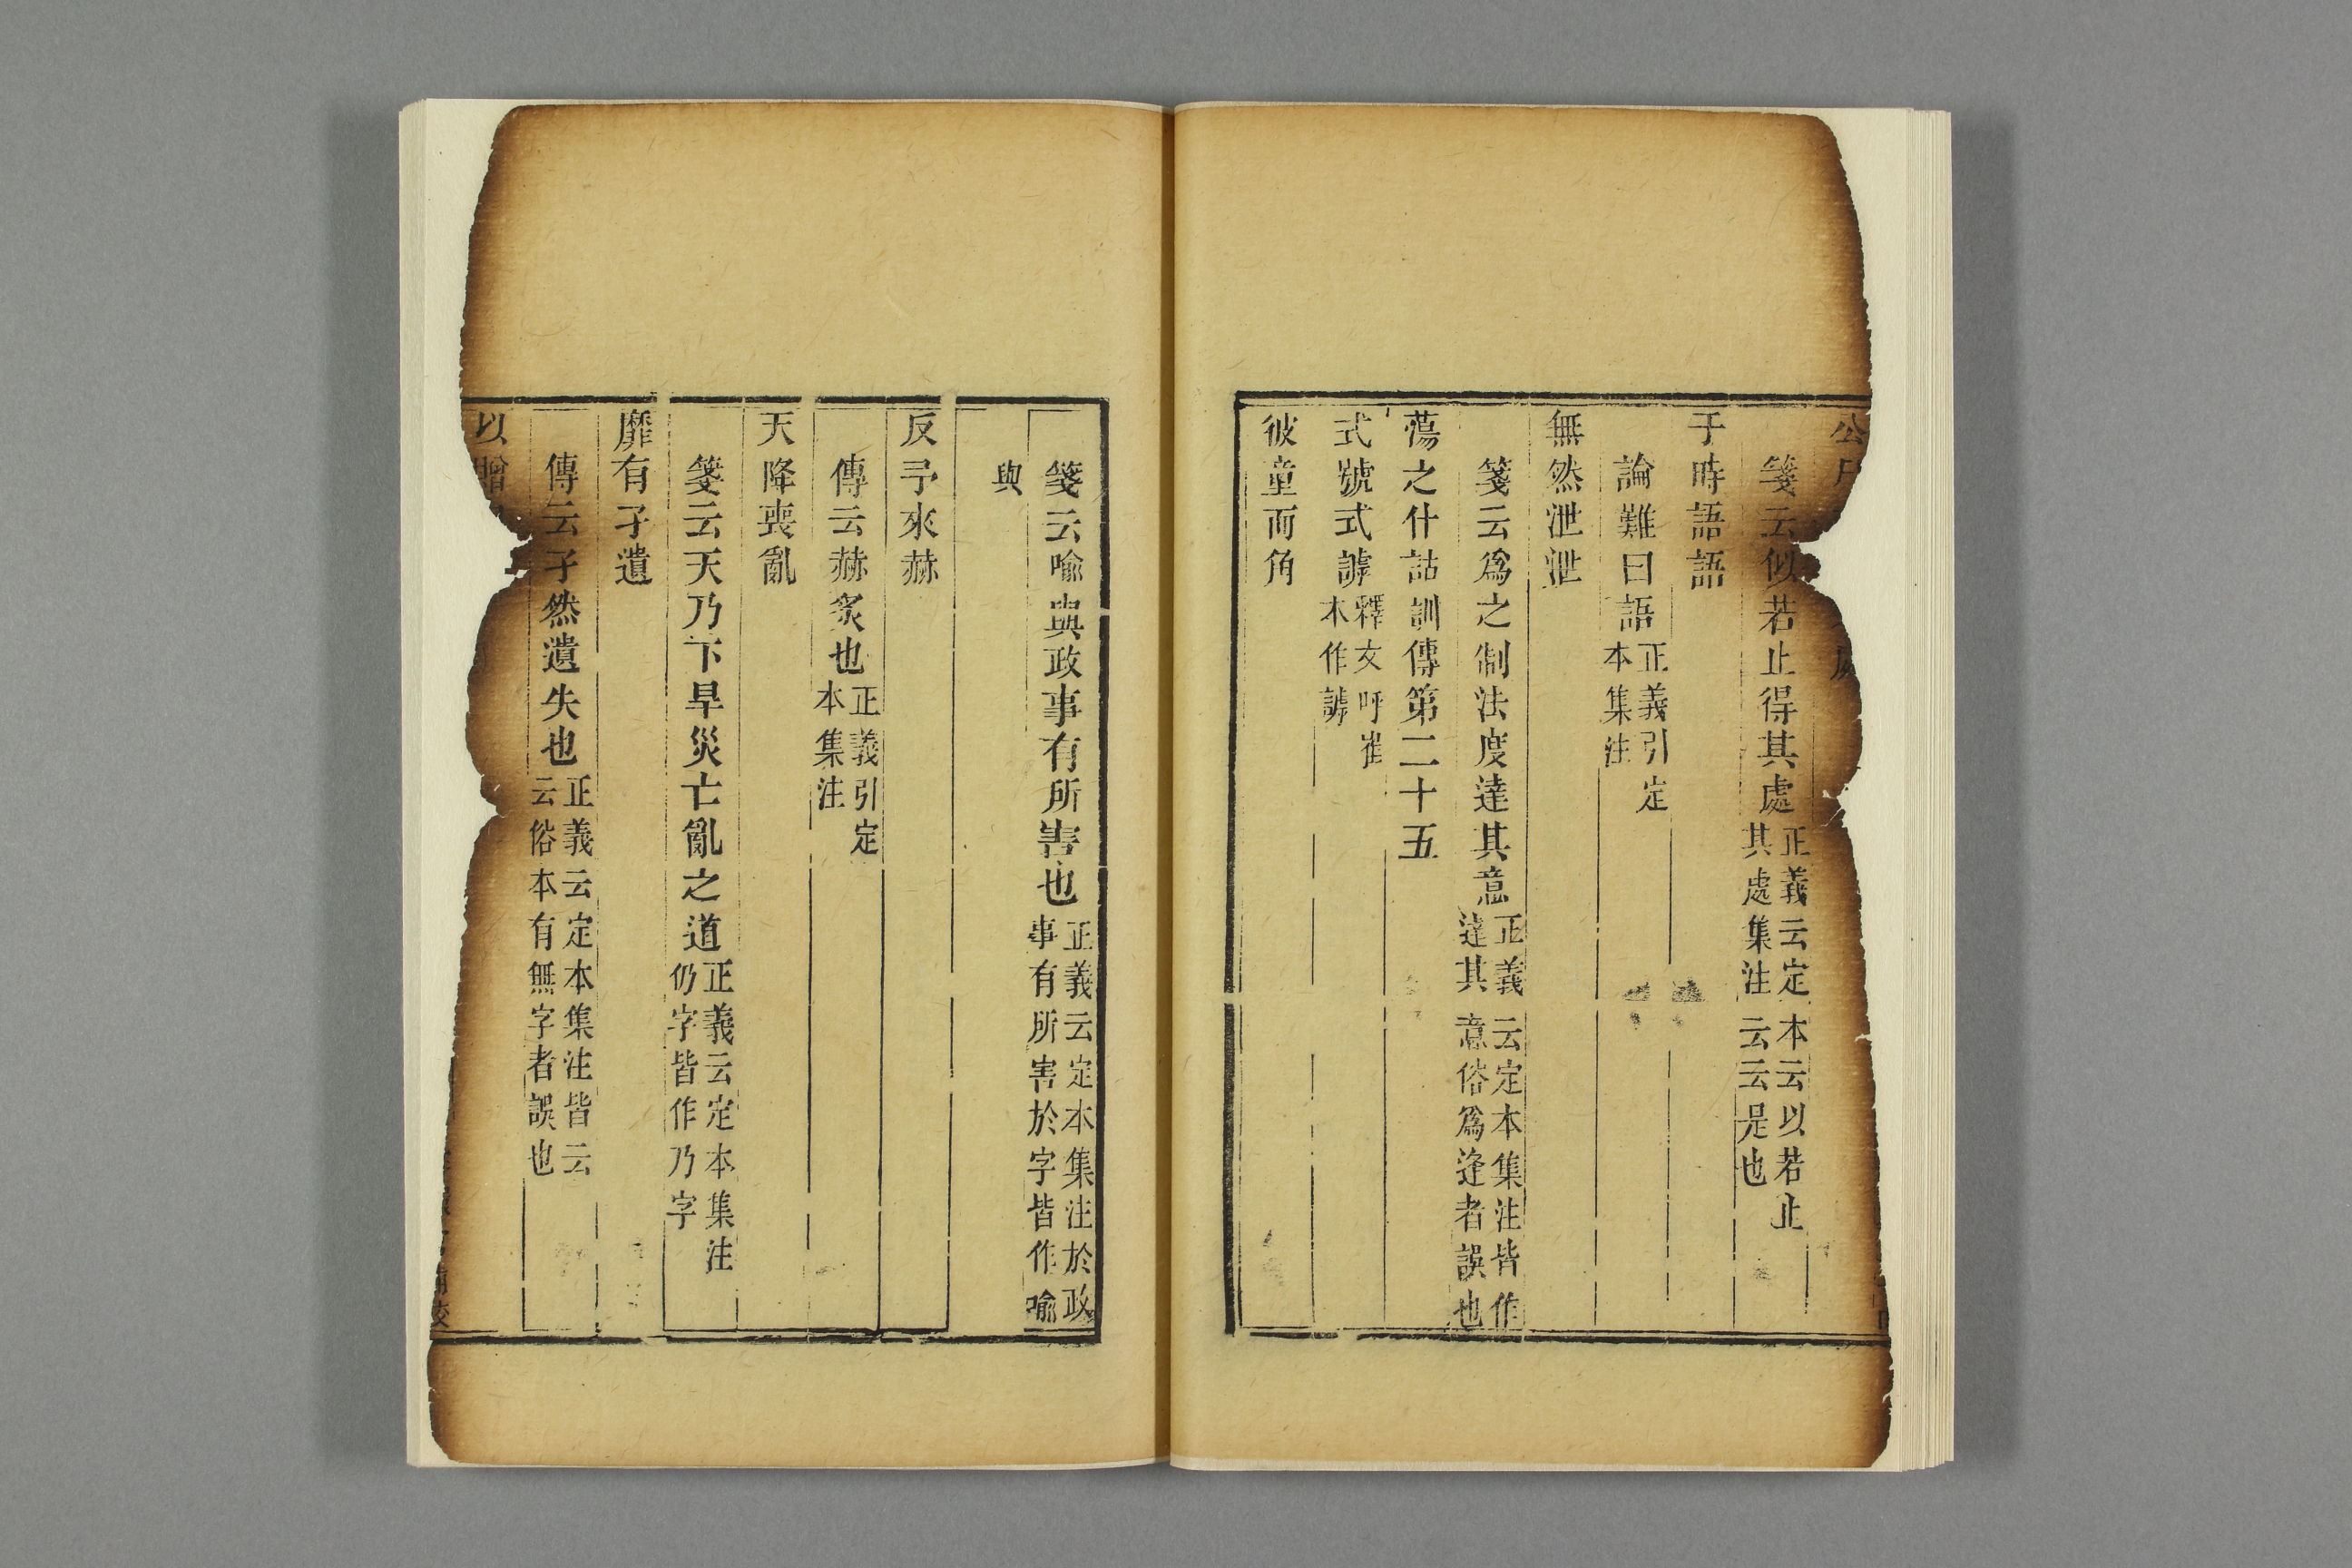 公尸
箋云似若止得其處正義云定本云以若止其處集注云云是也
于時語語
論難曰語正義引定本集注
無然泄泄
箋云爲之制法度達其意正義云定本集注皆作達其意俗爲逢者誤也
蕩之什詁訓傳第二十五
式號式謼釋文呼崔本作謼
彼童而角
箋云喻與政事有所害也正義云定本集注於政事有所害於字皆作喻
與
反予來赫
傳云赫炙也正義引定本集注
天降喪亂
箋云天乃下旱災亡亂之道正義云定本集注仍字皆作乃字
靡有孑遺
傳云孑然遺失也正義云定本集注皆云云俗本有無字者誤也
以贈